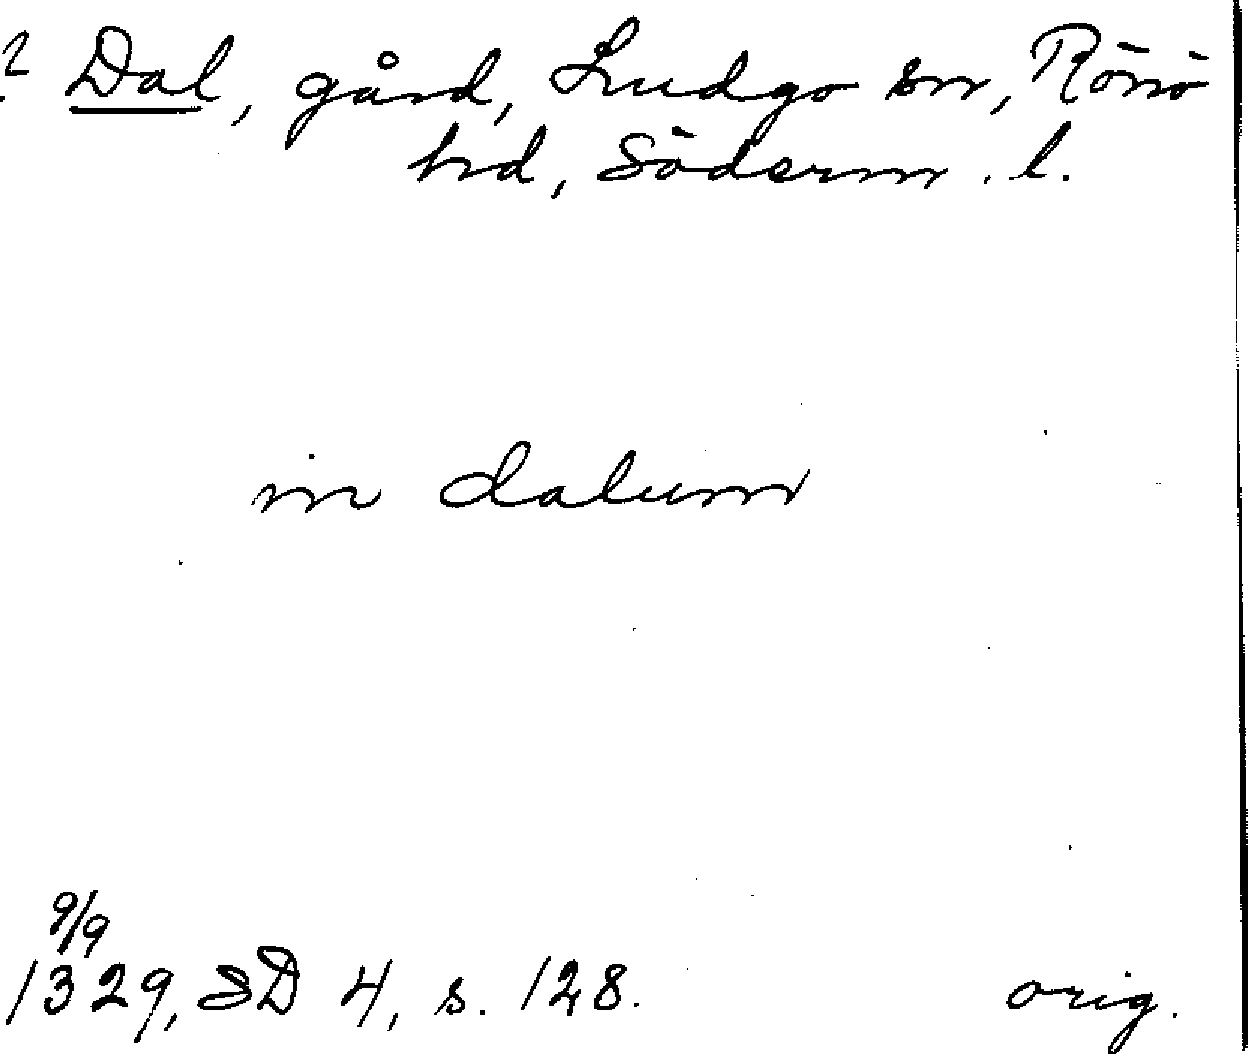 ? Dal, gård, Ludgo sn, Rönö
hd, Söderm. l.
in dalum
9/9
1329, SD 4, s. 128. orig.